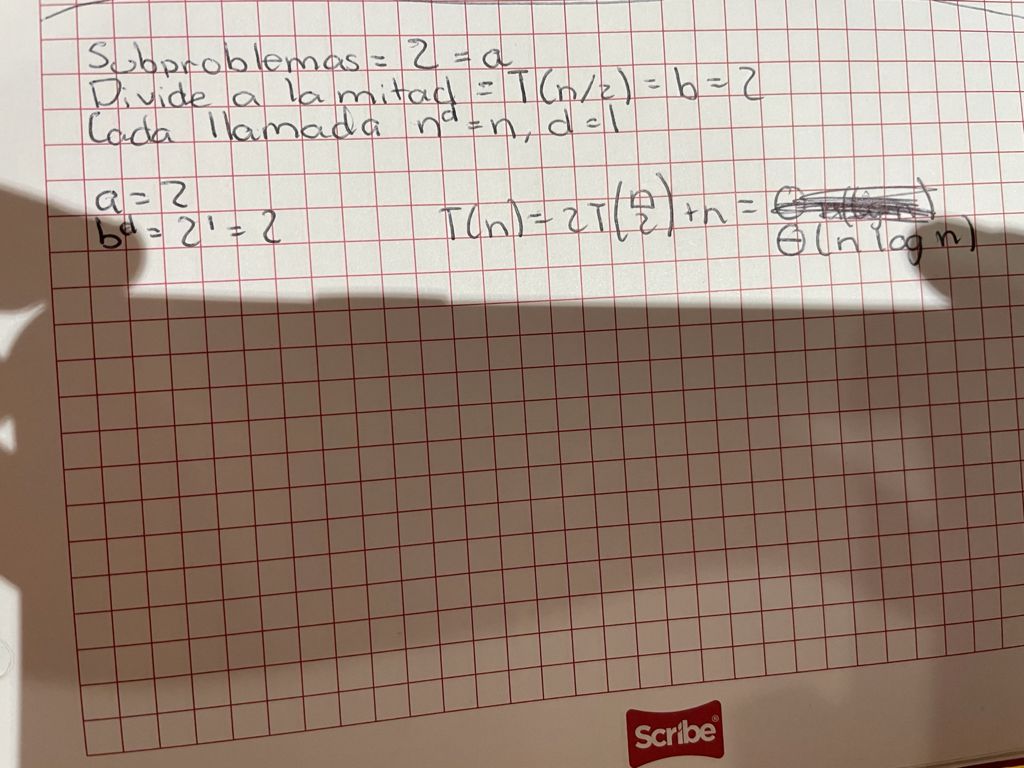 Subproblemas = 2 = a
Divide a la mitad = T(n/2) = b = 2
Cada llamada n^d = n, d = 1
a = 2
b^d = 2^1 = 2
T(n) = 2T(n/2) + n =
Θ(n log n)
Scribe®